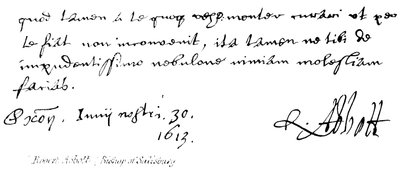 quod tamen a te quoq vehementer curari ut per
te fiat non inconvenit, ita tamen ne tibi de
impudentissimo nebulone nimiam molestiam
facias.
Oxon. Iunij nostri. 30.
1613.
R. Abbott
Robert Abbott / Bishop of Salisbury